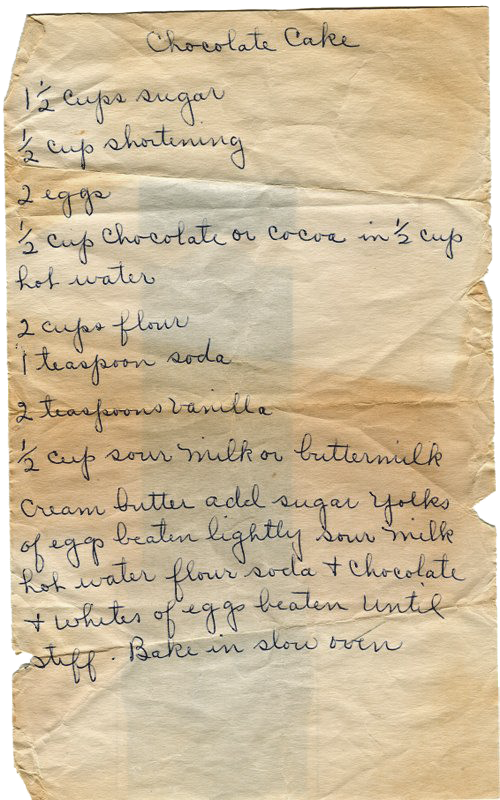 Chocolate Cake
1 1/2 cups sugar
1/2 cup shortening
2 eggs
1/2 cup chocolate or cocoa in 1/2 cup
hot water
2 cups flour
1 teaspoon soda
2 teaspoons vanilla
1/2 cup sour milk or buttermilk
Cream butter add sugar yolks
of eggs beaten lightly sour milk
hot water flour soda + chocolate
+ whites of eggs beaten until
stiff. Bake in slow oven